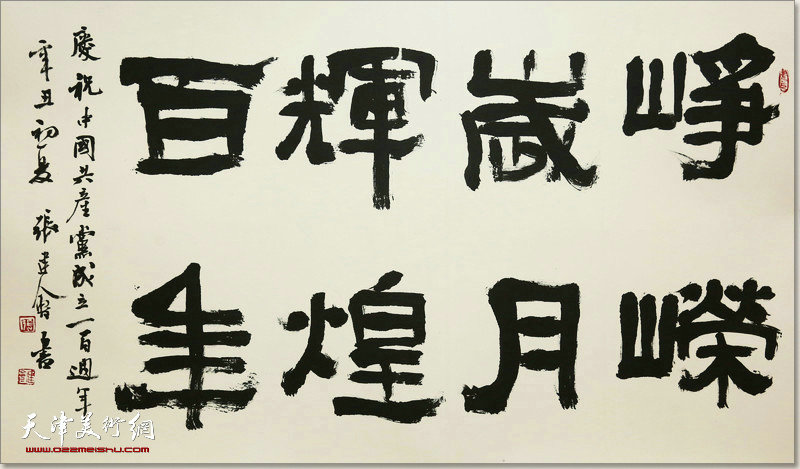 崢嶸
歲月
輝煌
百年
慶祝中國共產黨成立一百週年
辛丑初夏 張建會書
天津美術網
www.022meishu.com